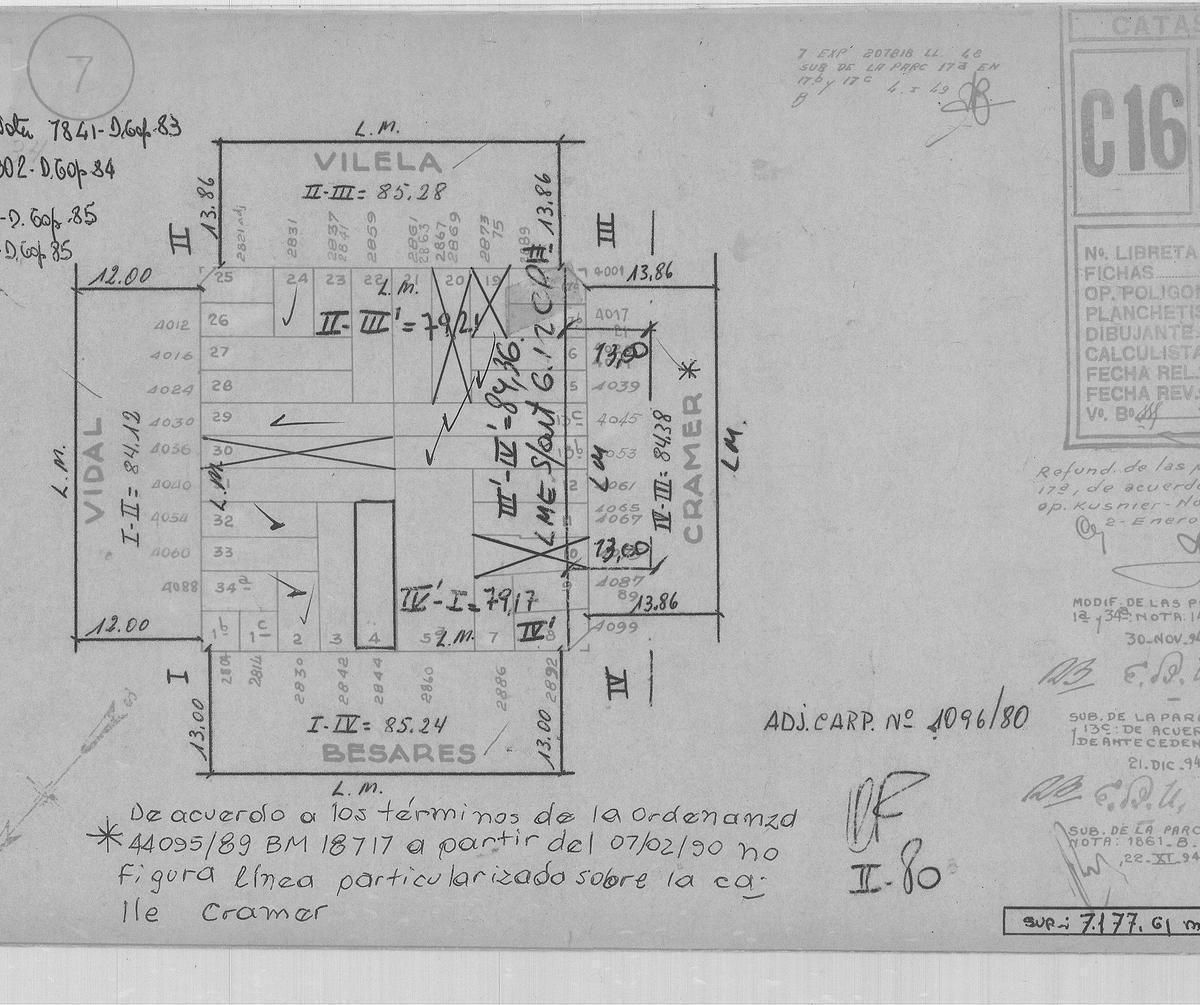 7
7 EXP 207818 LL. 48
SUB DE LA PARC 17a EN
17b y 17c 4. I 49
CATA
C16
7841-D.Gop.83
302-D.Gop 84
-D.Gop.85
-D.Gop 85
L.M.
VILELA
II-III = 85.28
13.86
13.86
II
III
2821 adj
2831
2837
2841
2859
2861
2863
2867
2869
2873
75
2889
12.00
13.86
25
24
23
22
21
20
19
4001
L.M.
II-III'=79,21
4012
26
4017
21
4016
27
13,00
4024
28
4039
4030
29
13c
4045
4036
30
13b
4053
4040
12
4061
4054
32
4065
4067
4060
33
13,00
4088
34a
4087
89
4099
VIDAL
I-II = 84.12
L.M.
L.M.
III'-IV'=84,36
LME S/art 6.12 CPU
LM
IV-III= 84.38
CRAMER
L.M.
IV'-I=79,17
L.M.
IV'
13.86
12.00
1b
1c
2
3
4
5
7
8
I
IV
2804
2814
2830
2842
2844
2860
2886
2892
13.00
13.00
I-IV= 85.24
BESARES
L.M.
Nº. LIBRETA
FICHAS
OP. POLIGO
PLANCHETIS
DIBUJANTE
CALCULISTA
FECHA REL.
FECHA REV.
Vº. Bº.
Refund. de las
17a, de acuerdo
op. Kusnier-
2-Enero
MODIF. DE LAS P
1a y 34a: NOTA: 1
30-NOV. 94
SUB. DE LA PAR
y 13c: DE ACUER
DE ANTECEDEN
21. DIC. 94
SUB. DE LA PARC
NOTA: 1861-B.
22-XI-94
ADJ. CARP. Nº 1096/80
II-80
De acuerdo a los términos de la ordenanza
* 44095/89 BM 18717 a partir del 07/02/90 no
figura línea particularizada sobre la ca-
lle Cramer
SUP.: 7.177.61 m